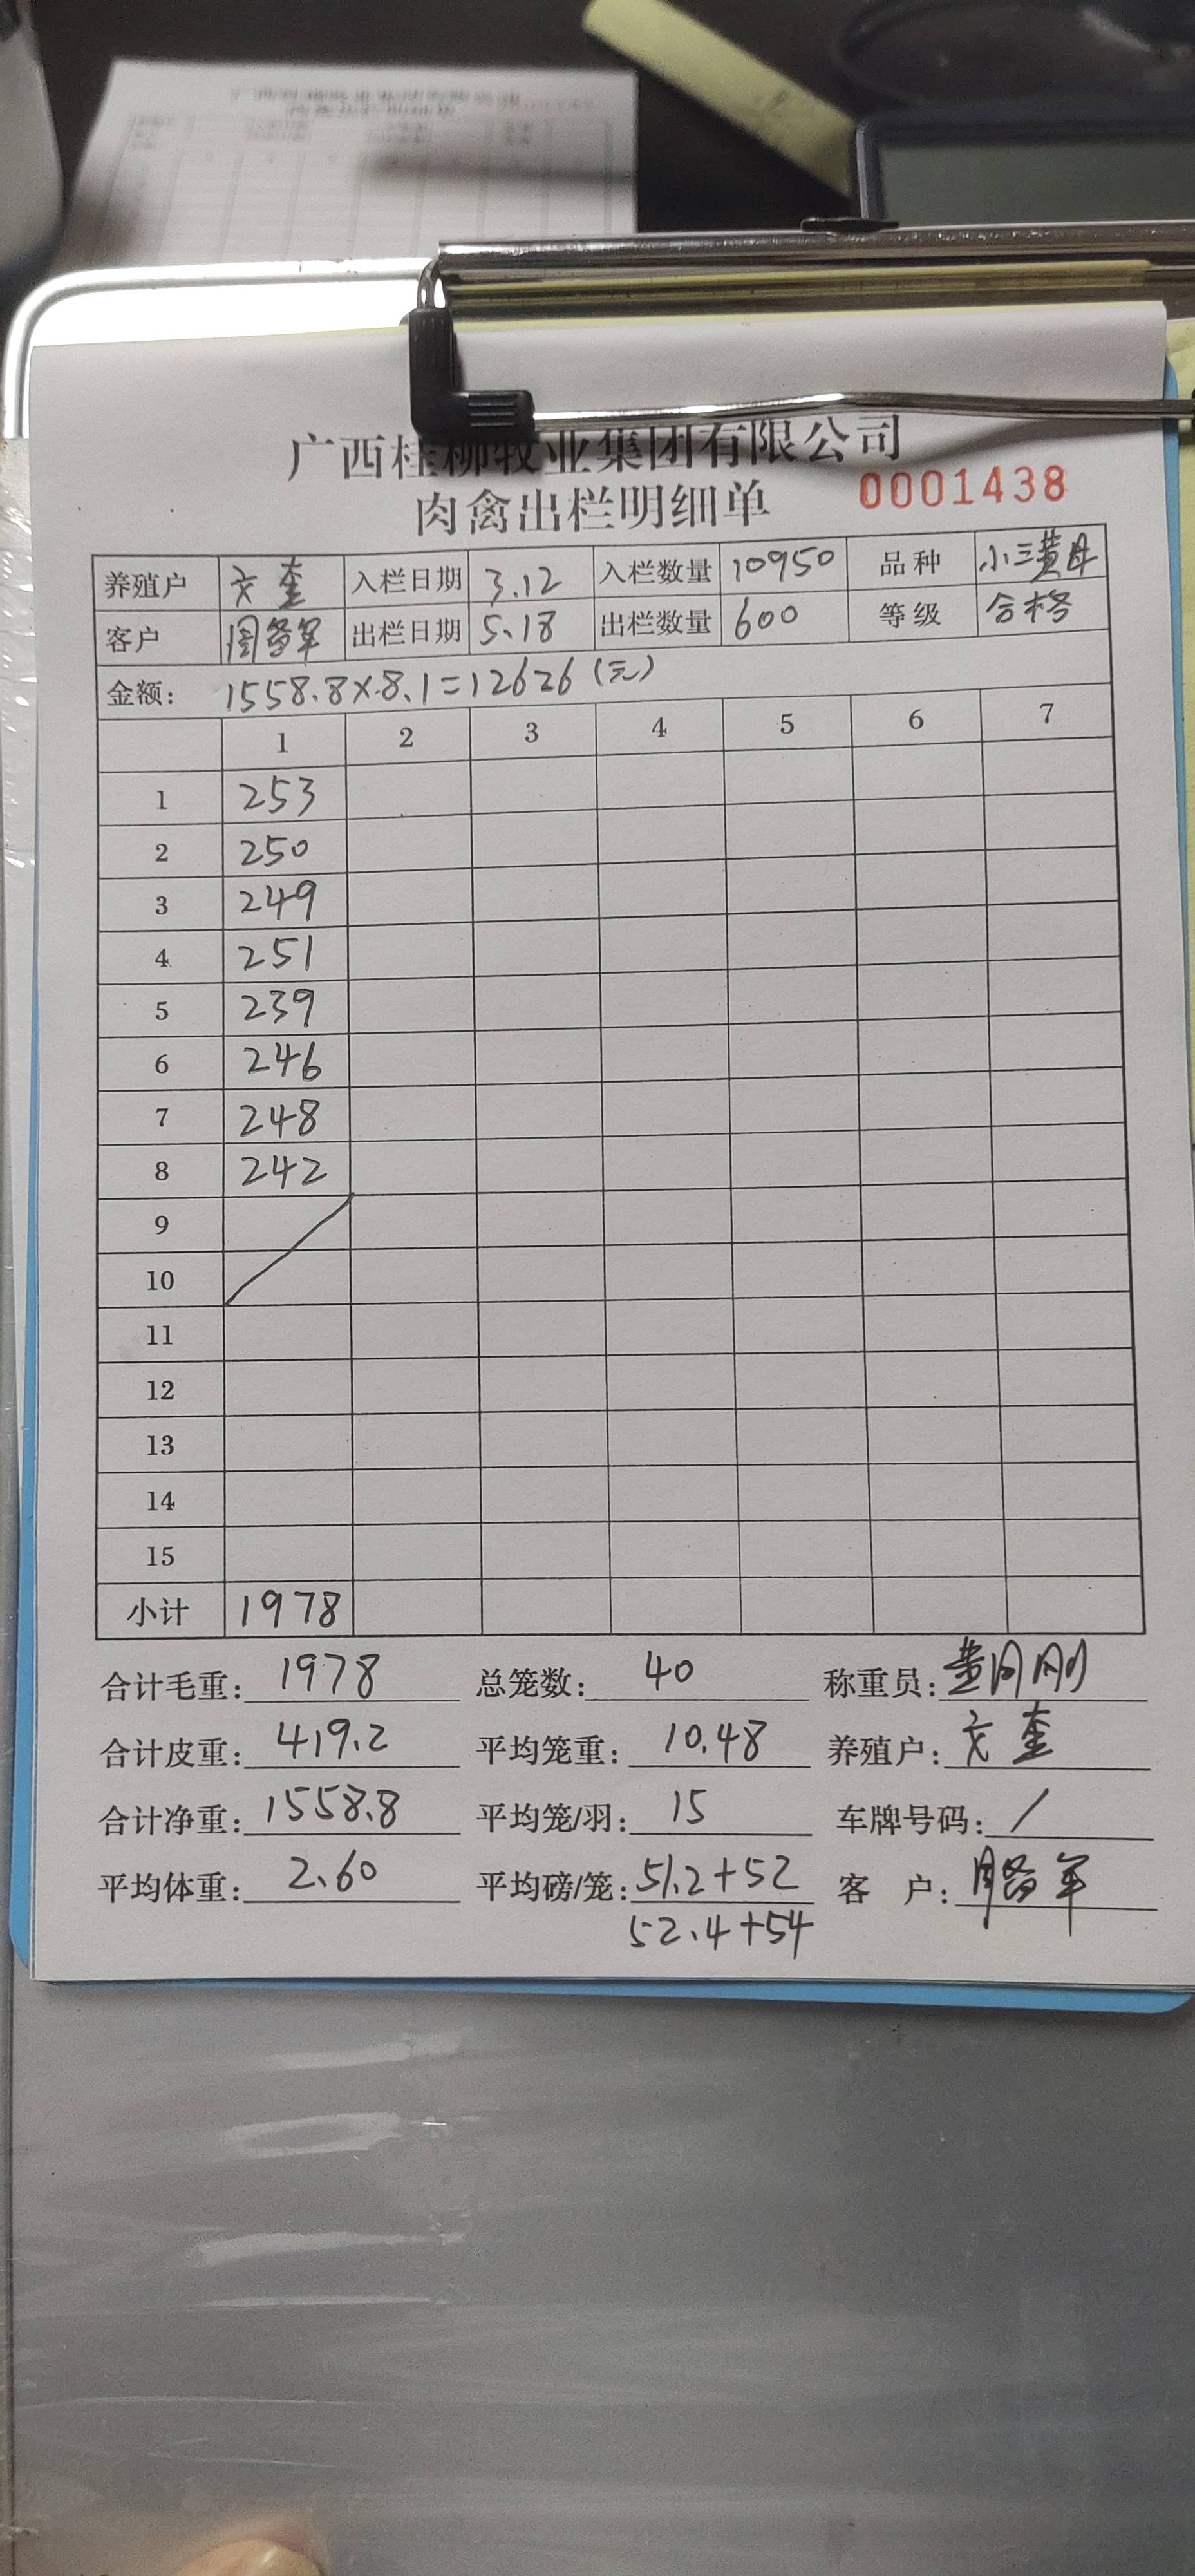 广西桂柳牧业集团有限公司
肉禽出栏明细单 0001438
养殖户 文奎 入栏日期 3.12 入栏数量 10950 品种 小三黄母
客户 出栏日期 5.18 出栏数量 600 等级 合格
金额: 1558.8×8.1=12626(元)
1 2 3 4 5 6 7
1 253
2 250
3 249
4 251
5 239
6 246
7 248
8 242
9
10
11
12
13
14
15
小计 1978
合计毛重: 1978 总笼数: 40 称重员:
合计皮重: 419.2 平均笼重: 10.48 养殖户: 文奎
合计净重: 1558.8 平均笼/羽: 15 车牌号码: /
平均体重: 2.60 平均磅/笼: 51.2+52 客 户:
52.4+54